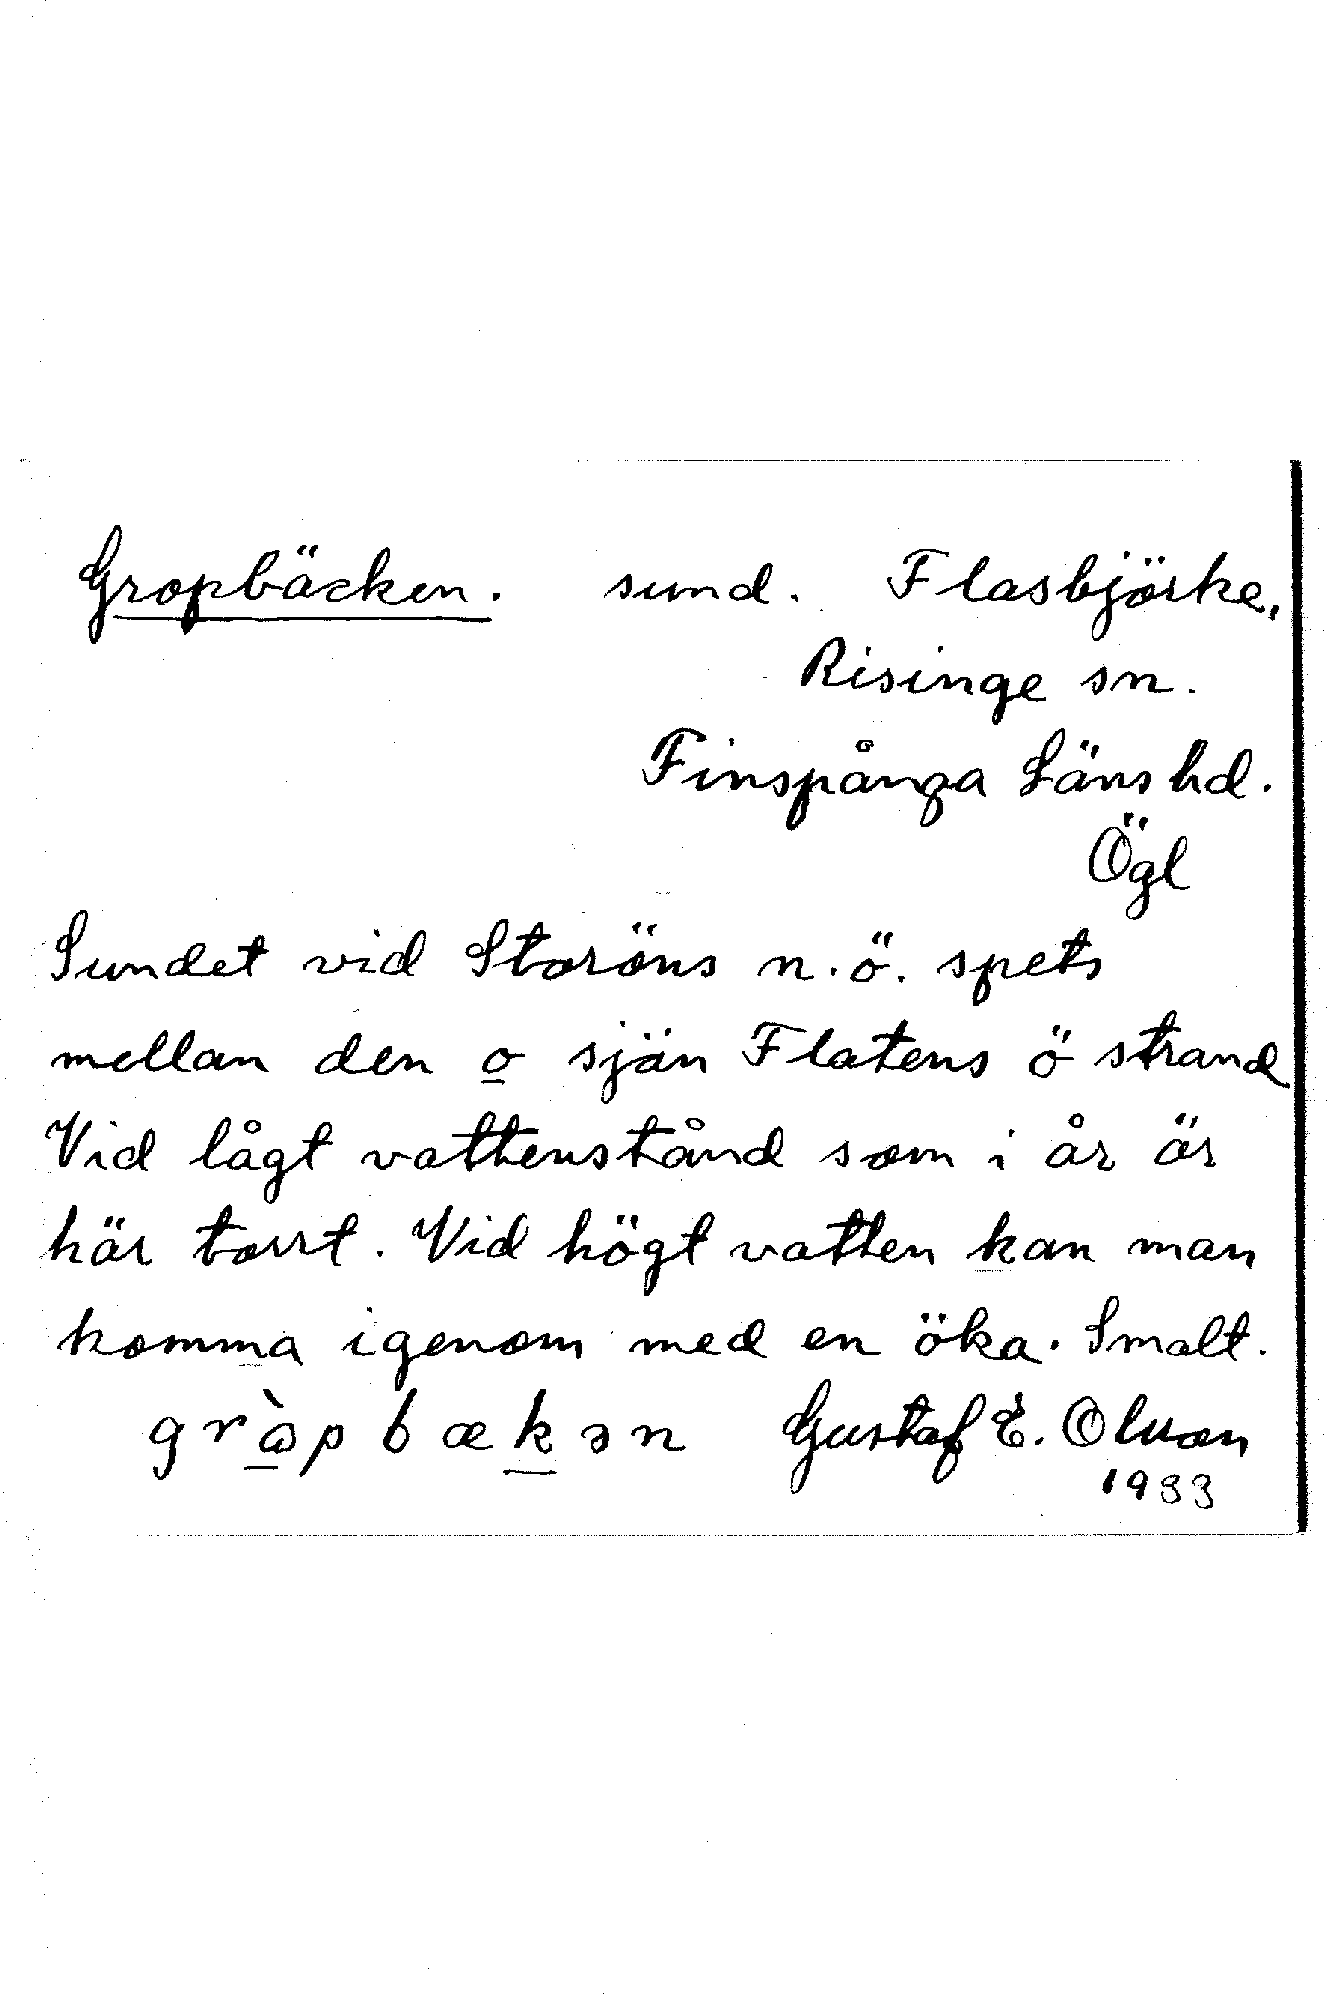 Gropbäcken. sund. Flasbjörke,
Risinge sn.
Finspånga Läns hd.
Ögl
Sundet vid Storöns n.ö. spets
mellan den o sjön Flatens ö strand
Vid lågt vattenstånd som i år är
här torrt. Vid högt vatten kan man
komma igenom med en öka. Smalt.
gròpbækən Gustaf E. Olsson
1933